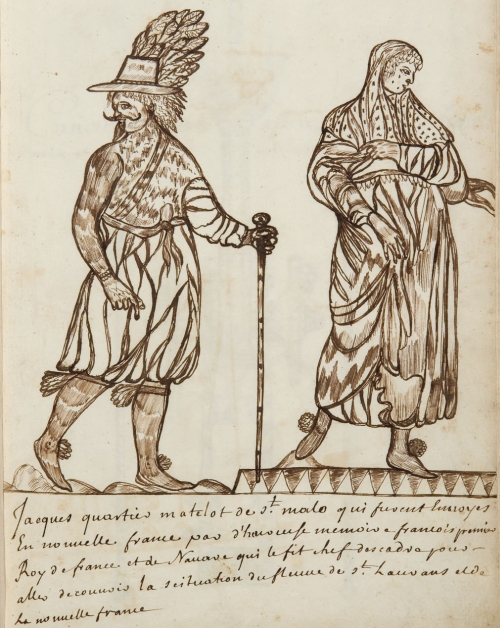 Jacques quartier matelot de st. malo qui furent Envoyes
En nouvelle france par d'heureuse memoire francois premier
Roy de france et de Navare qui le fit chef descadre pour
aller decouvrir la scituation du fleuve de st. Lauvans et de
La nouvelle france